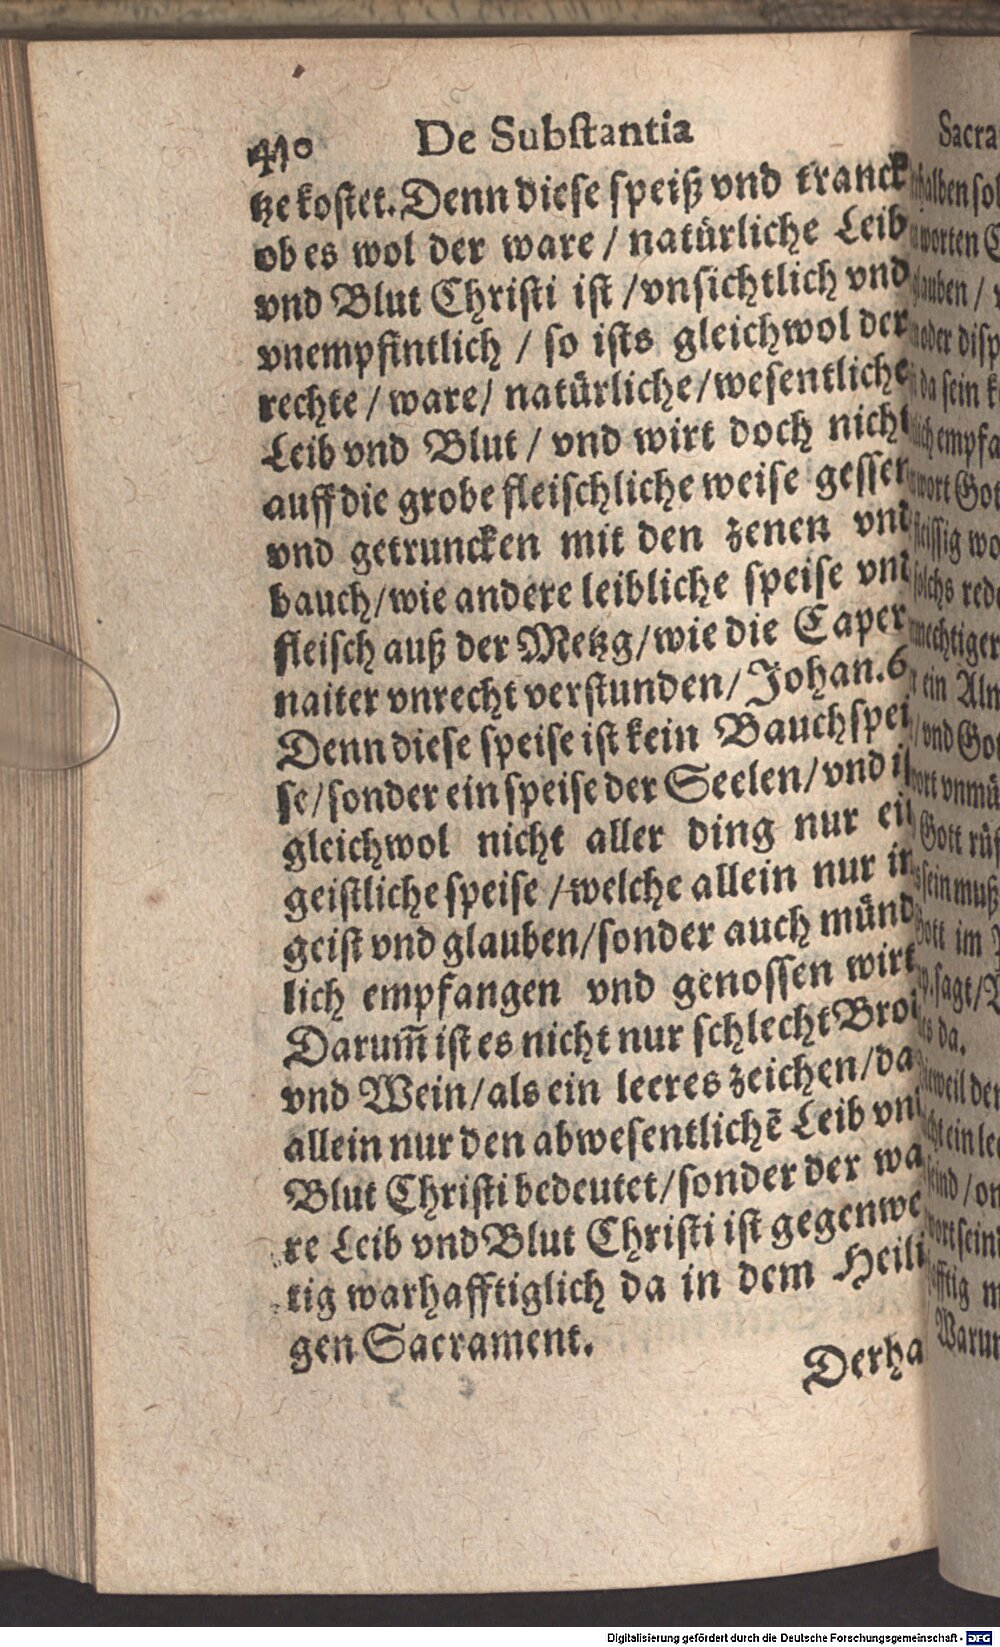 410 De Substantia
tze kostet. Denn diese speiß vnd tranck
ob es wol der ware / natürliche Leib
vnd Blut Christi ist / vnsichtlich vnd
vnempfintlich / so ists gleichwol der
rechte / ware / natürliche / wesentliche
Leib vnd Blut / vnd wirt doch nicht
auff die grobe fleischliche weise gessen
vnd getruncken mit den zenen vnd
bauch / wie andere leibliche speise vnd
fleisch auß der Metzg / wie die Caper
naiter vnrecht verstunden / Johan. 6
Denn diese speise ist kein Bauchspei
se / sonder ein speise der Seelen / vnd is
gleichwol nicht aller ding nur ein
geistliche speise / welche allein nur in
geist vnd glauben / sonder auch münd
lich empfangen vnd genossen wirt
Darum̃ ist es nicht nur schlecht Brot
vnd Wein / als ein leeres zeichen / da
allein nur den abwesentlichē Leib vnd
Blut Christi bedeutet / sonder der wa
re Leib vnd Blut Christi ist gegenwe
tig warhafftiglich da in dem Heili
gen Sacrament.
Derha
Sacra
halben sol
worten
glauben /
oder disp
da sein k
empfa
wort Got
fleissig wo
solchs rede
mechtiger
ein Alm
vnd Got
wort vnmü
Gott rü
sein muß
Gott im
sagt /
da.
dieweil der
nicht ein lee
seind / on
wort sein
m
Warum
Digitalisierung gefördert durch die Deutsche Forschungsgemeinschaft - DFG